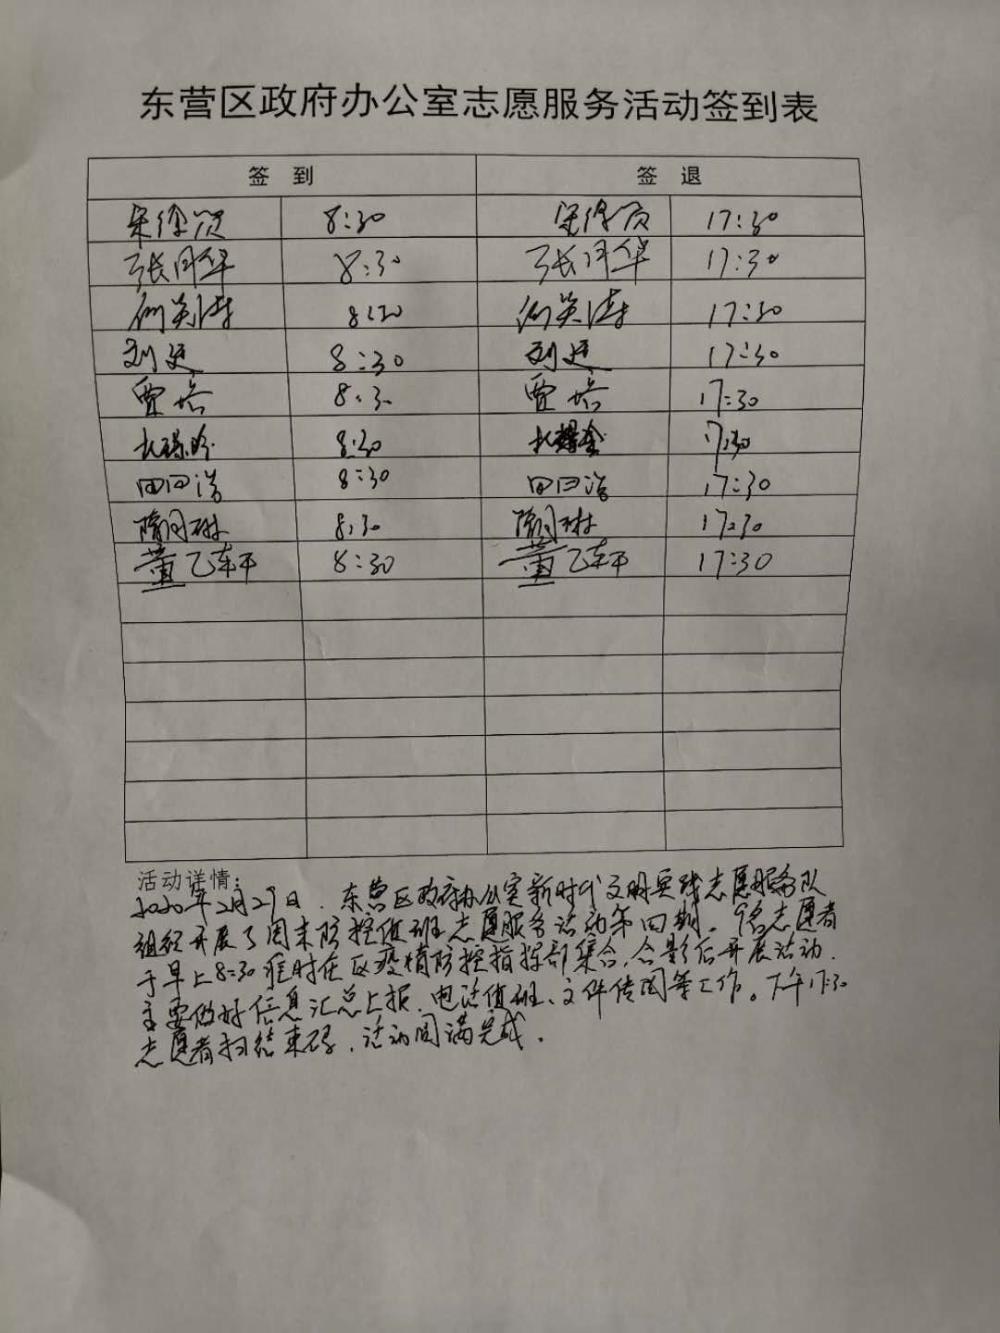 东营区政府办公室志愿服务活动签到表
签 到 签 退
8:30 17:30
张同华 8:30 张同华 17:30
8:30 17:30
刘延 8:30 刘延 17:30
贾培 8:30 贾培 17:30
8:30 17:30
田回浩 8:30 田回浩 17:30
隋同琳 8:30 隋同琳 17:30
董乙轩 8:30 董乙轩 17:30
活动详情:
2020年2月29日,东营区政府办公室新时代文明实践志愿服务队
组织开展了周末防控值班志愿服务活动第四期。9名志愿者
于早上8:30准时在区疫情防控指挥部集合,合影后开展活动.
主要做好信息汇总上报、电话值班、文件传阅等工作。下午17:30
志愿者扫结束码,活动圆满完成.